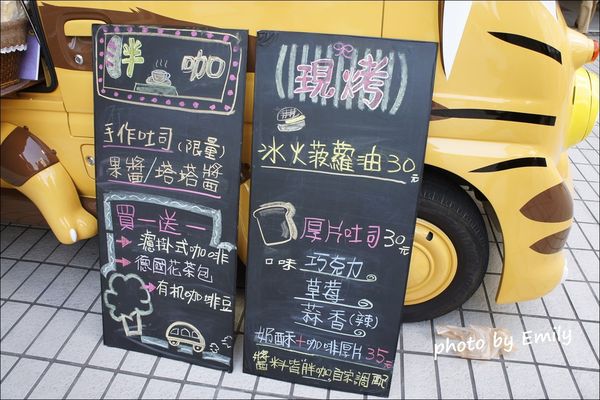 胖咖
手作吐司(限量)
果醬/塔塔醬
買一送一
濾掛式咖啡
德國花茶包
有机咖啡豆
現烤
冰火菠蘿油30元
厚片吐司30元
口味 巧克力。
草莓。
蒜香(辣)
奶酥+咖啡厚片35元
醬料皆胖咖自家調配
photo by Emily